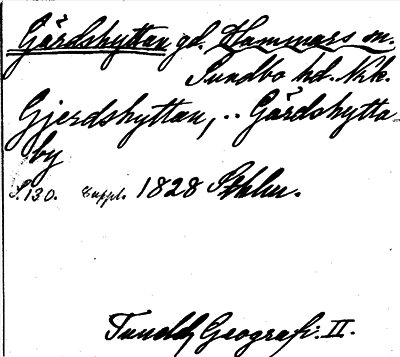 Gårdshyttan gd. Hammars sn.
Sundbo hd. Nrk.
Gjerdshyttan, .. Gårdshytta
by
S. 130. Suppl. 1828 Sthlm.
Tuneld, Geografi. II.